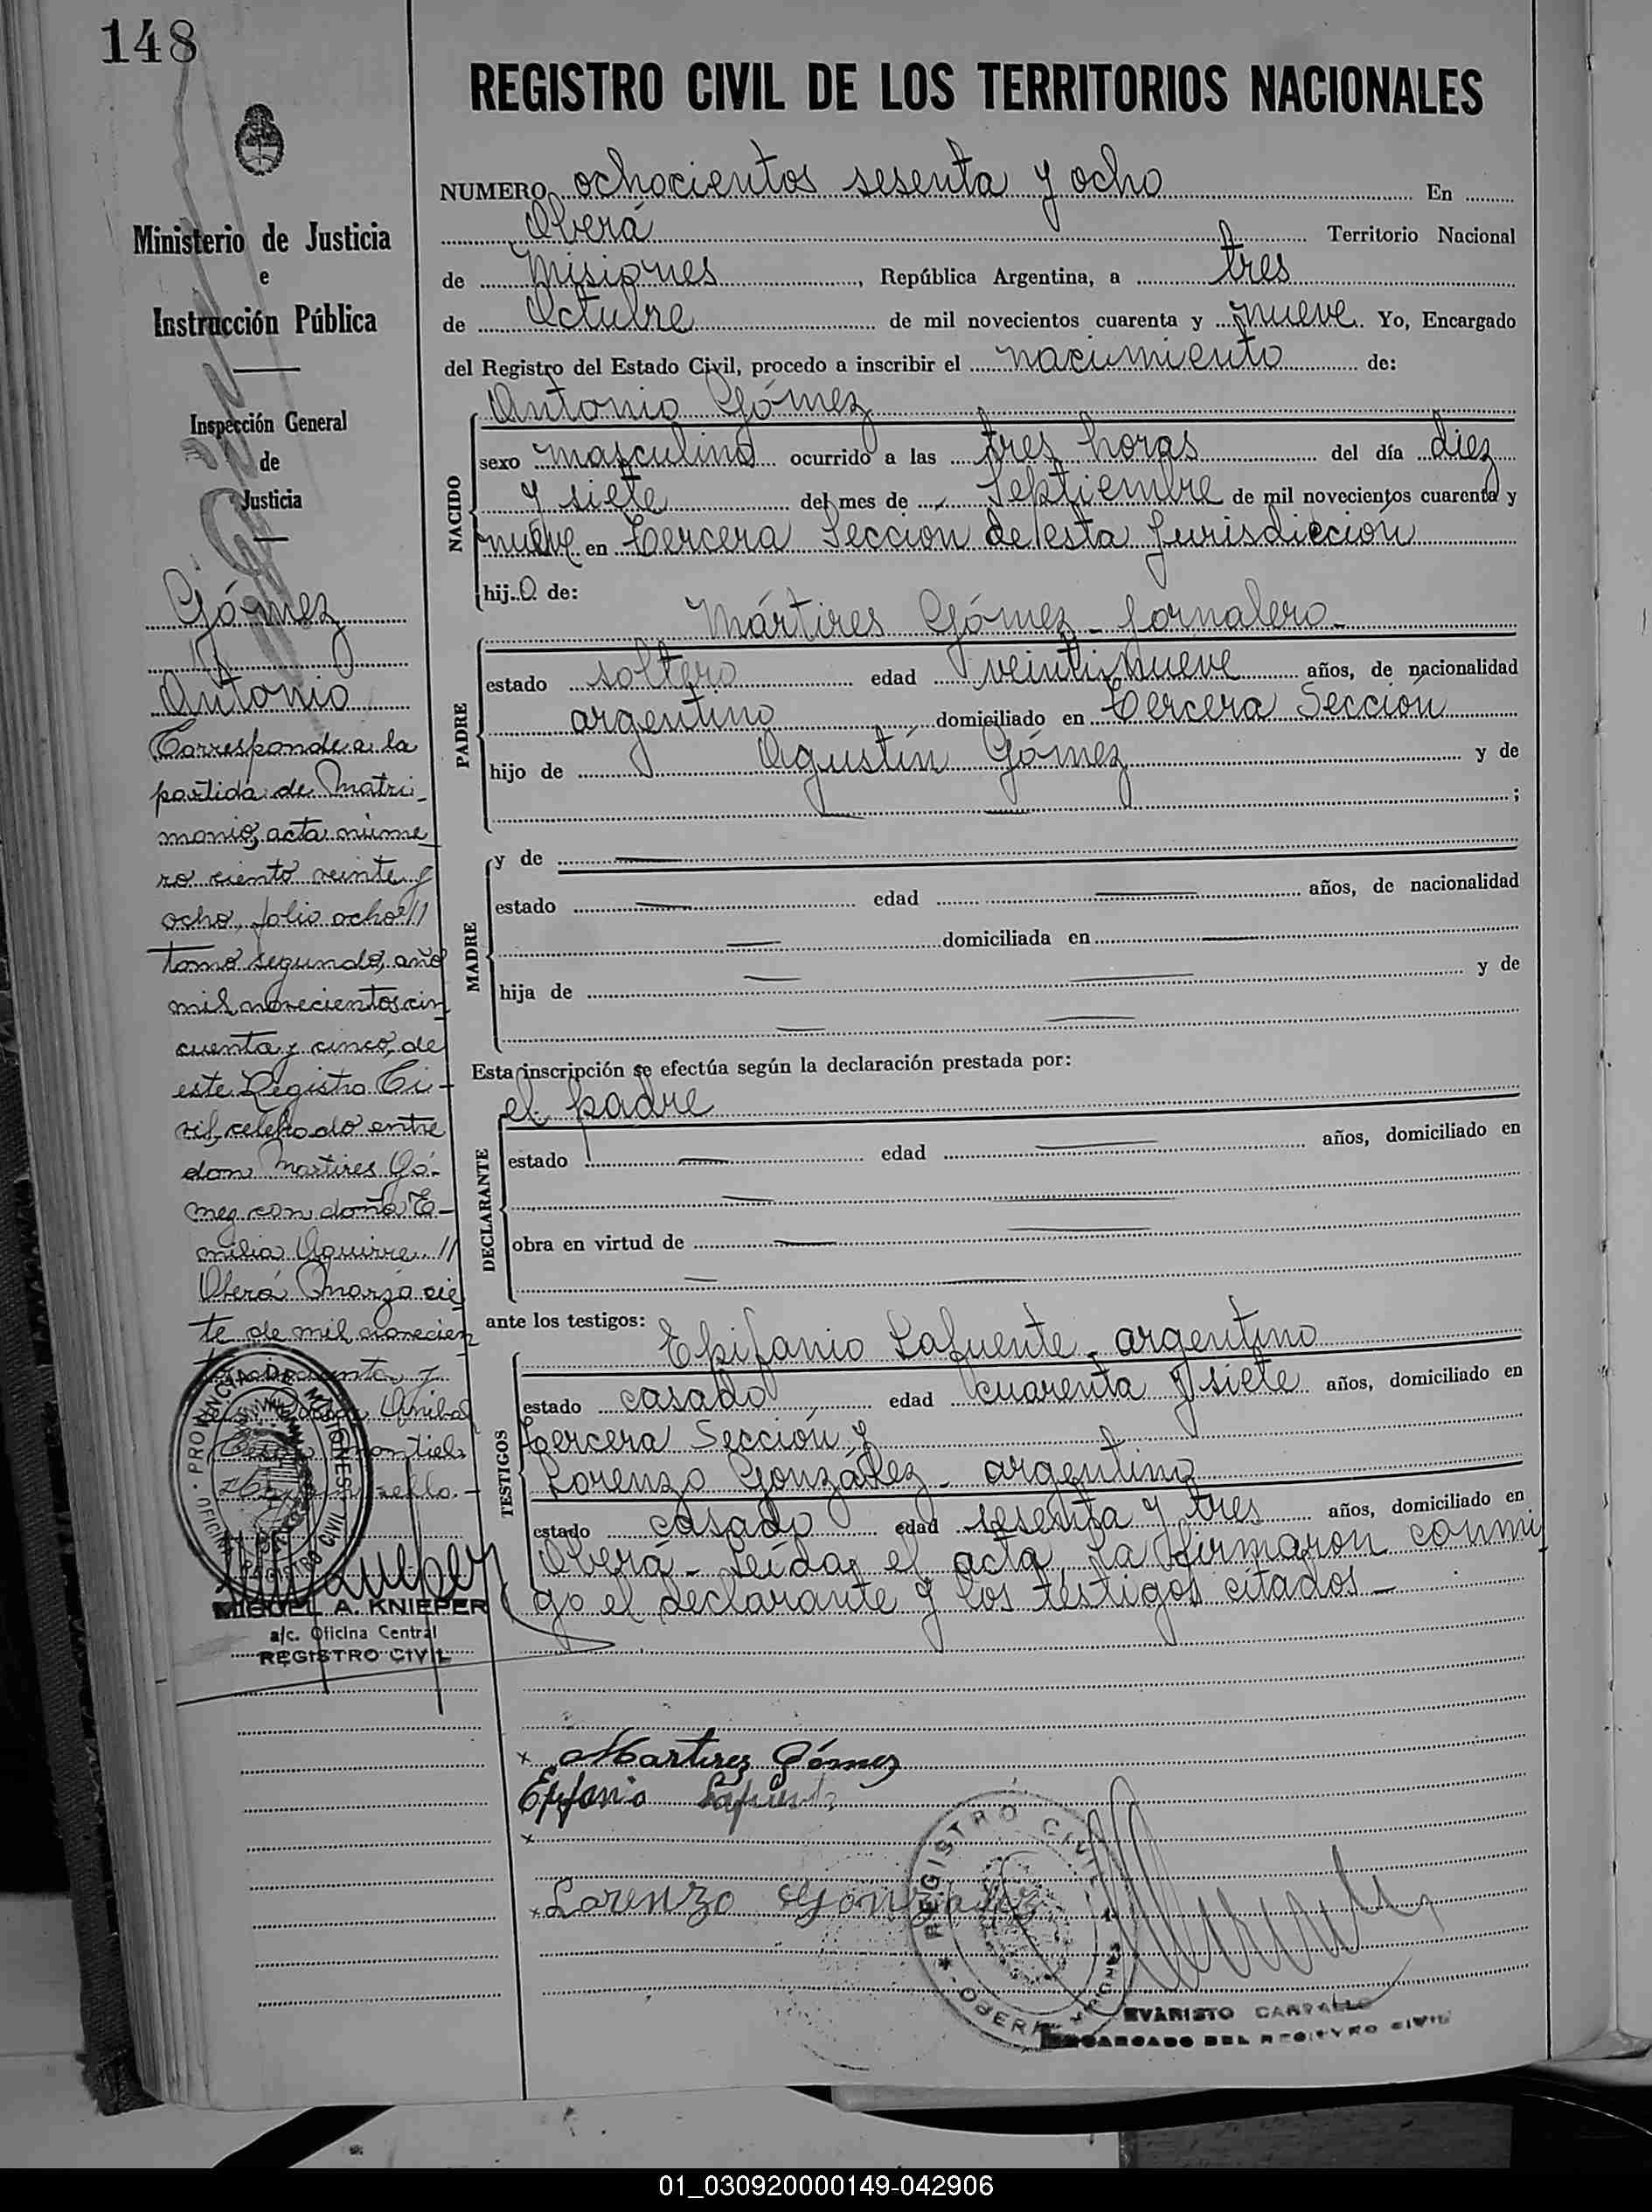 148
REGISTRO CIVIL DE LOS TERRITORIOS NACIONALES
NUMERO ochocientos sesenta y ocho En
Oberá Territorio Nacional
de Misiones, República Argentina, a tres
de Octubre de mil novecientos cuarenta y nueve. Yo, Encargado
del Registro del Estado Civil, procedo a inscribir el nacimiento de:
NACIDO
Antonio Gómez
sexo masculino ocurrido a las tres horas del día diez
y siete del mes de Septiembre de mil novecientos cuarenta y
nueve en tercera Sección de esta Jurisdicción
hijo de:
PADRE
Mártires Gómez - Jornalero -
estado soltero edad veintinueve años, de nacionalidad
argentino domiciliado en tercera Sección
hijo de Agustín Gómez y de
;
MADRE
y de
estado edad años, de nacionalidad
domiciliada en
hija de y de
Esta inscripción se efectúa según la declaración prestada por:
DECLARANTE
el padre
estado edad años, domiciliado en
obra en virtud de
ante los testigos:
TESTIGOS
Epifanio Lafuente - argentino
estado casado edad cuarenta y siete años, domiciliado en
tercera Sección y
Lorenzo González - argentino
estado casado edad sesenta y tres años, domiciliado en
Oberá - Leída el acta la firmaron conmi
go el declarante y los testigos citados -
x Martires Gómez
Epifanio Lafuente
x
x Lorenzo González
REGISTRO CIVIL
OBERA MISIONES
EVARISTO CARVALLO
ENCARGADO DEL REGISTRO CIVIL
Ministerio de Justicia
e
Instrucción Pública
Inspección General
de
Justicia
Gómez
Antonio
Corresponde a la
partida de Matri-
monio, acta núme
ro ciento veinte y
ocho, folio ocho //
tomo segundo, año
mil novecientos cin
cuenta y cinco, de
este Registro Ci-
vil, celebrado entre
don Martires Gó-
mez con doña E-
milia Aguirre. //
Oberá Marzo sie
te de mil novecien
Anibal
Montiel
sello. -
PROVINCIA DE MISIONES
OFICINA REGISTRO CIVIL
MIGUEL A. KNIEPER
a/c. Oficina Central
REGISTRO CIVIL
01_030920000149-042906